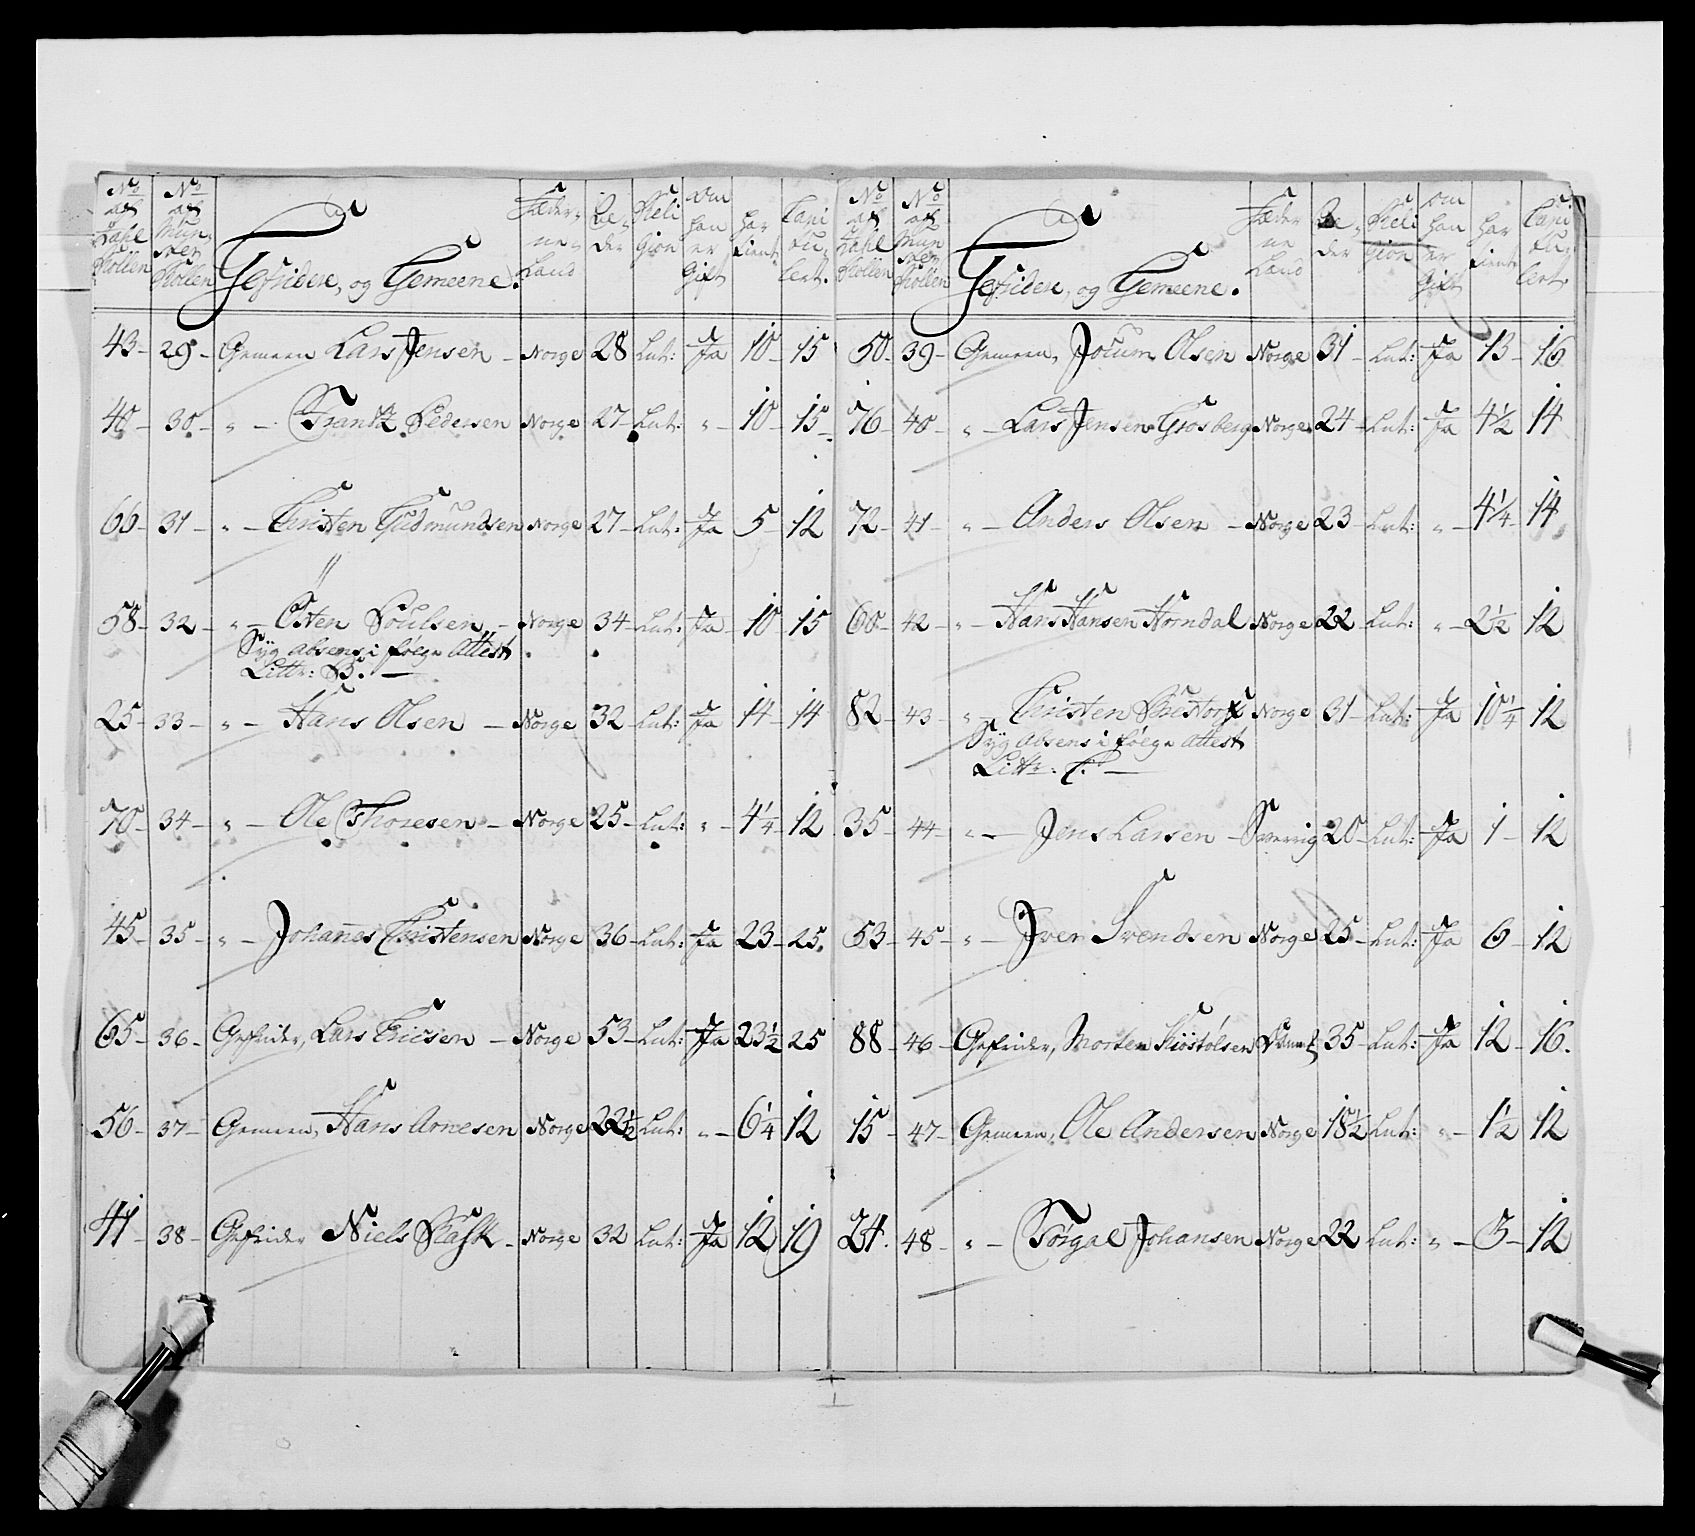 No af Zahl Rollen | No af Mun-ster Rollen | Gefridere, og Gemeene. | Fæder-ne-Land | Al-der | Reli Gion | Om han er Gift | har tient | Capi tu-lert.
43 - 29 - Gemeen Lars Jensen - Norge 28 Lut: Ja 10 - 15
40 - 30 - " - Frantz Pedersen Norge 27 - Lut: " - 10 - 15 -
66 - 31 - " - Christen Gudmundsen Norge 27 - Lut: Ja 5 - 12
58 - 32 - " - Østen Poulsen - Norge 34 - Lut: Ja 10 - 15
Syg absens i følge Attest
Littr: B. -
25 - 33 - " - Hans Olsen - Norge 32 - Lut: Ja 14 - 14
70 - 34 - " - Ole Thoresen - Norge 25 - Lut: " - 4 1/4 - 12
45 - 35 - " - Johannes Christensen Norge 36 - Lut: Ja 23 - 25.
65 - 36 - Gefrider, Lars Ericsen - Norge 53 - Lut: Ja 23 1/2 25
56 - 37 - Gemeen, Hans Arnesen Norge 22 1/2 Lut: " - 6 1/4 12
41 - 38 - Gefrider Niels Flask - Norge 32 Lut: Ja 12 19
No af Zahl Rollen | No af Mun ster Rollen | Gefridere, og Gemeene. | Fæder ne Land | Al-der | Reli gion | Om han er Gift | har tient | Capi tu-lert.
50 - 39 - Gemeen, Jocum Olsen Norge 31 - Lut: Ja 13 - 16
76 - 40 - " - Lars Jensen Grosberg Norge 24 - Lut: Ja 4 1/2 14
72 - 41 - " - Anders Olsen - Norge 23 - Lut: " - 4 1/4 - 14
60 - 42 - " - Hans Hansen Horndal Norge 22 - Lut: " - 2 1/2 12
82 - 43 - " Christen Norge 31 - Lut: Ja 10 1/4 12
Syg absens i følge Attest
Littr. C. -
35 - 44 - " - Jens Larsen - Sverrig 20 - Lut: Ja 1 - 12
53 - 45 - " - Iver Svendsen Norge 25 - Lut: Ja 6 - 12
88 - 46 - Gefrider, Morten Kiøstølsen 35 - Lut: Ja 12 - 16.
15 - 47 - Gemeen, Ole Andersen Norge 18 1/2 Lut: " - 1 1/2 12
24. 48 - " - Torgal Johansen Norge 22 Lut: " - 5 - 12